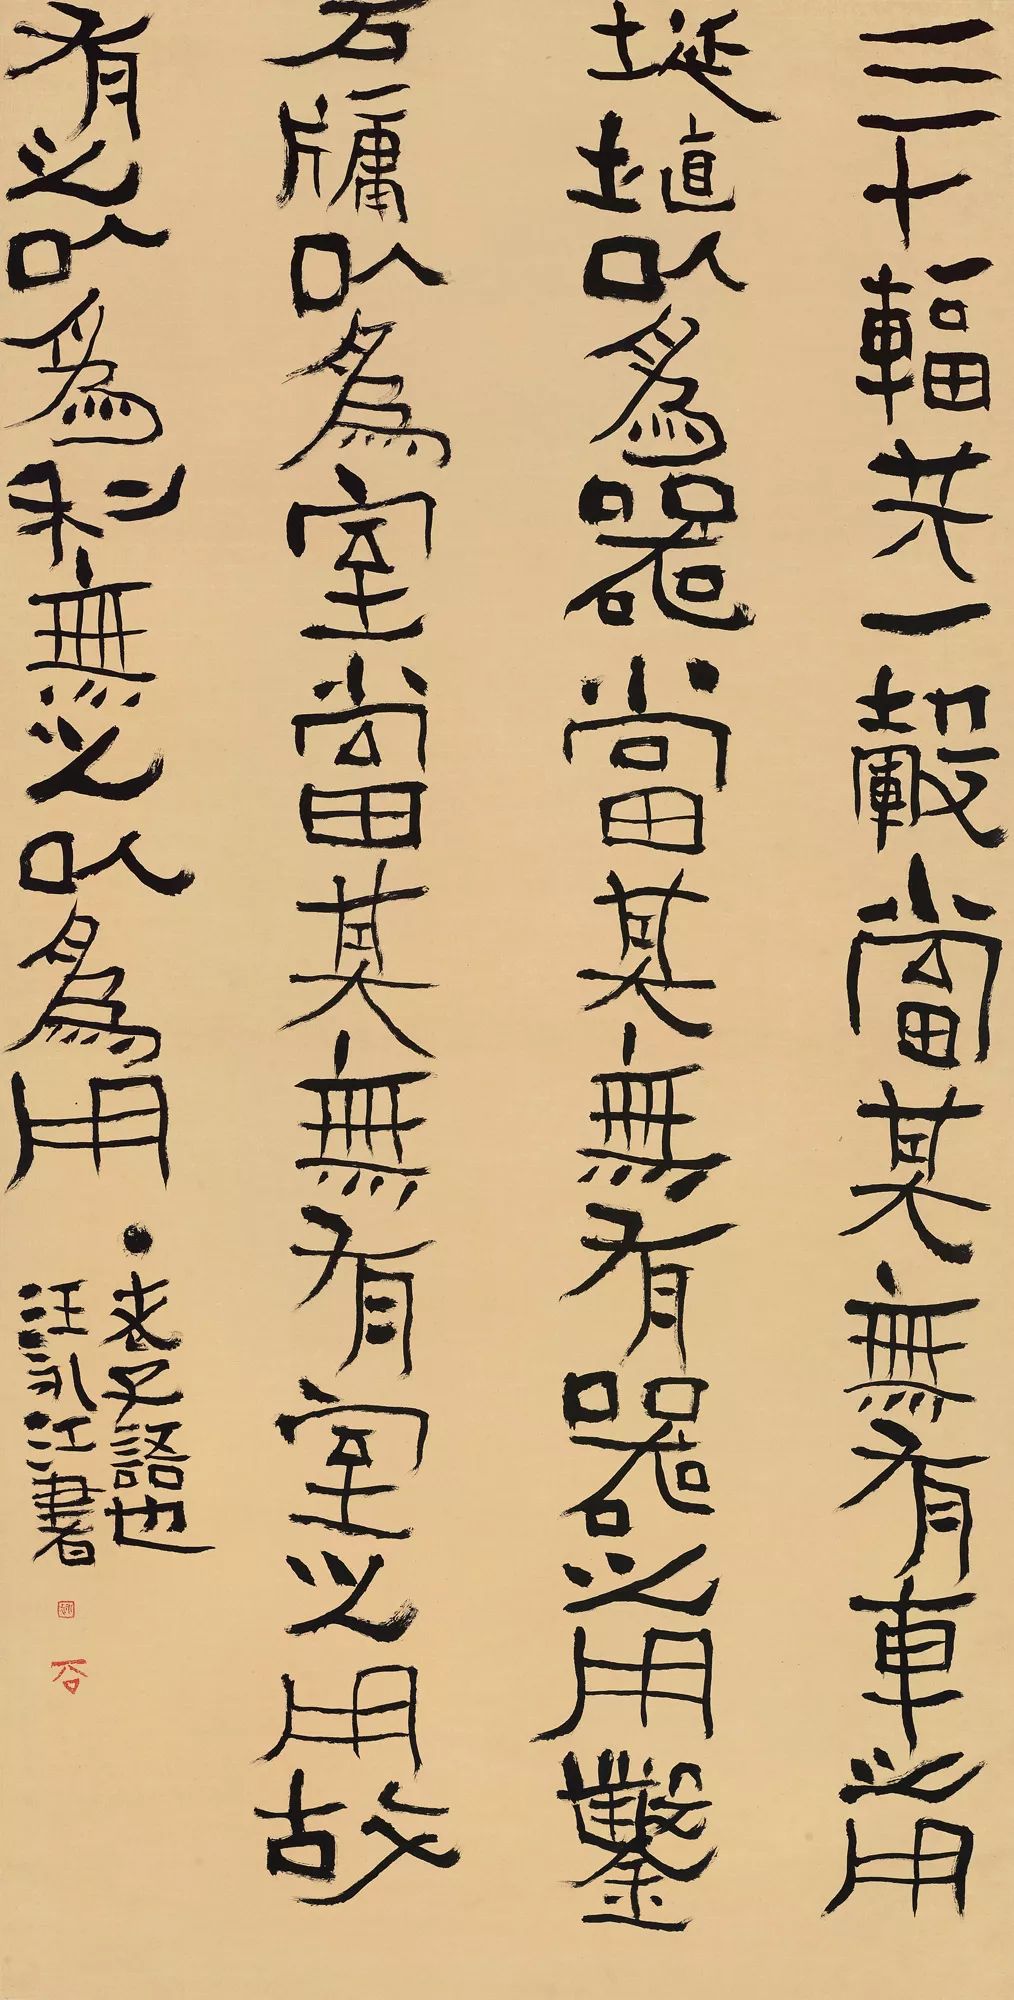 三十輻共一轂當其無有車之用
埏埴以爲器當其無有器之用鑿
戶牖以爲室當其無有室之用故
有之以爲利無之以爲用
老子語也
汪永江書